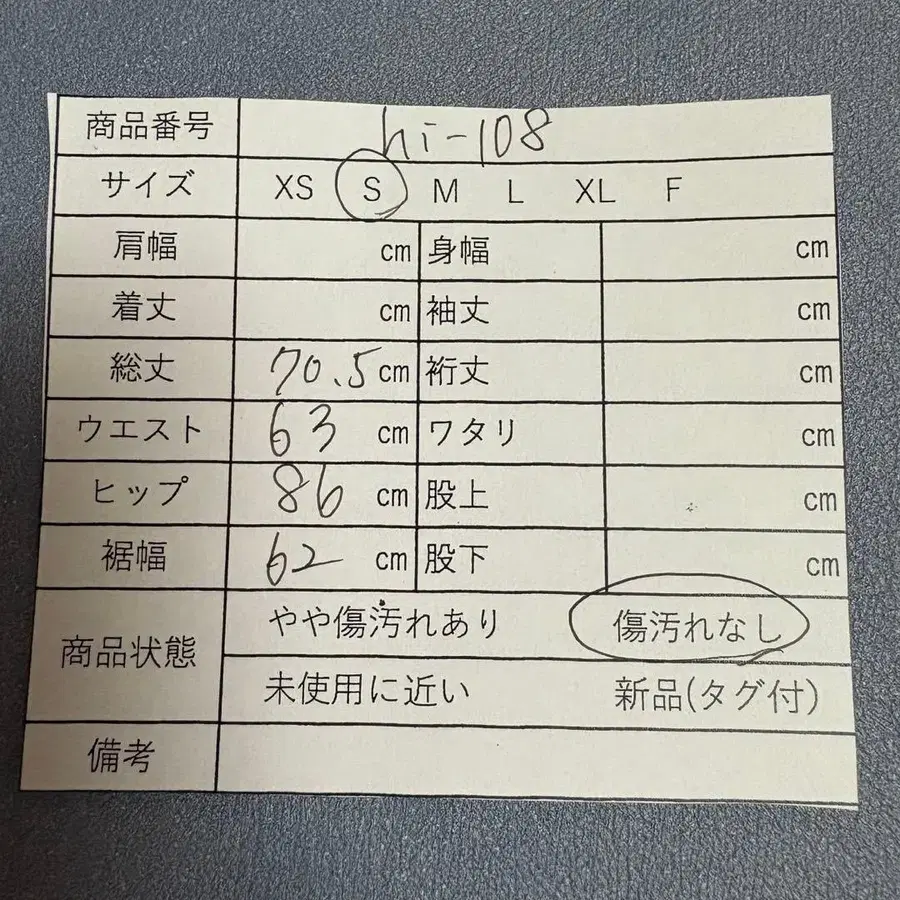 商品番号 hi-108
サイズ XS S M L XL F
肩幅 cm 身幅 cm
着丈 cm 袖丈 cm
総丈 70.5 cm 裄丈 cm
ウエスト 63 cm ワタリ cm
ヒップ 86 cm 股上 cm
裾幅 62 cm 股下 cm
商品状態 やや傷汚れあり 傷汚れなし
未使用に近い 新品(タグ付)
備考